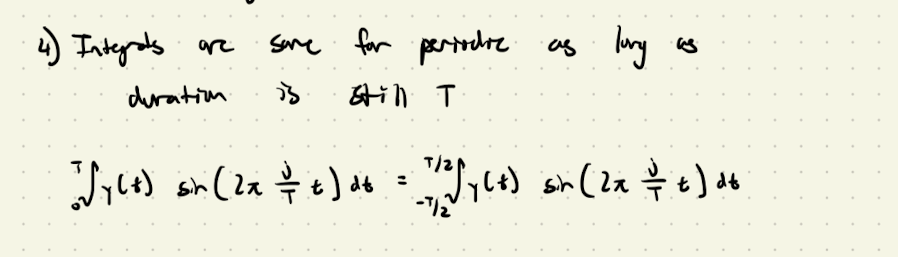 4) Integrals are same for periodic as long as
duration is still T
₀ᵀ∫ y(t) sin(2π j/T t) dt = ₋T/2^T/2∫ y(t) sin(2π j/T t) dt